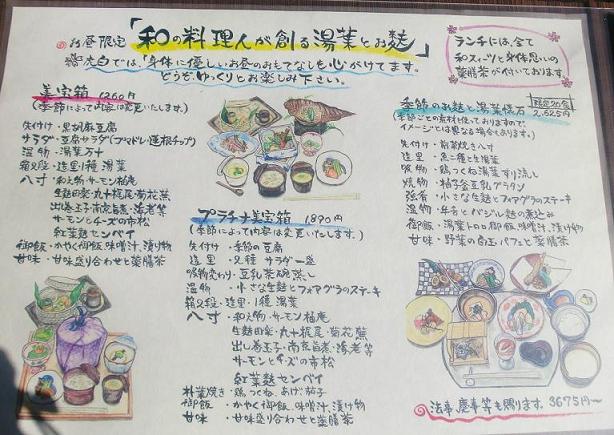 お昼限定
「和の料理人が創る湯葉とお麩」
では、「身体に優しいお昼のおもてなしも心がけてます。
どうぞ、ゆっくりとお楽しみ下さい。
ランチには、全て
和スイーツと身体思いの
薬膳茶が付いております。
美宝箱 1260円
(季節によって内容は変更いたします。)
先付け・黒胡麻豆腐
サラダ・豆腐サラダ(プマドレ・蓮根チップ)
温物・湯葉万十
箱又段・造里1種 湯葉
八寸・和え物・サーモン柚庵
生麩田楽・丸十梔尾・菊花蕪
出し巻玉子・南京旨煮・海老等
サーモンとチーズの市松
紅葉麩センベイ
御飯・かやく御飯,味噌汁,漬け物
甘味・甘味盛り合わせと薬膳茶
プラチナ美宝箱 1890円
(季節によって内容は変更いたします。)
先付け・季節の豆腐
造里・2種 サラダ一盛
吸物変わり・豆乳茶碗蒸し
温物・小さな生麩とフォアグラのステーキ
箱又段・造里・1種 湯葉
八寸・和え物・サーモン柚庵
生麩田楽・丸十梔尾・菊花蕪
出し巻玉子・南京旨煮・海老等
サーモンとチーズの市松
紅葉麩センベイ
朴葉焼き・鶏つくね、あげ茄子
御飯・かやく御飯、味噌汁、漬け物
甘味・甘味盛り合わせと薬膳茶
季節のお麩と湯葉懐石
限定20食
2,625円
(季節ごとの素材を使っておりますので、
イメージとは異なる場合も有ります。)
先付け・前菜焼き八寸
造里・魚二種と生湯葉
吸物・鶏つくね湯葉すり流し
焼物・柚子釜豆乳グラタン
強肴・小さな生麩とフォアグラのステーキ
温物・牛舌とバジル麩の煮込み
御飯・湯葉トロロ御飯,味噌汁,漬け物
甘味・野菜の商玉パフェと薬膳茶
法事、慶事等も賜ります。3675円~